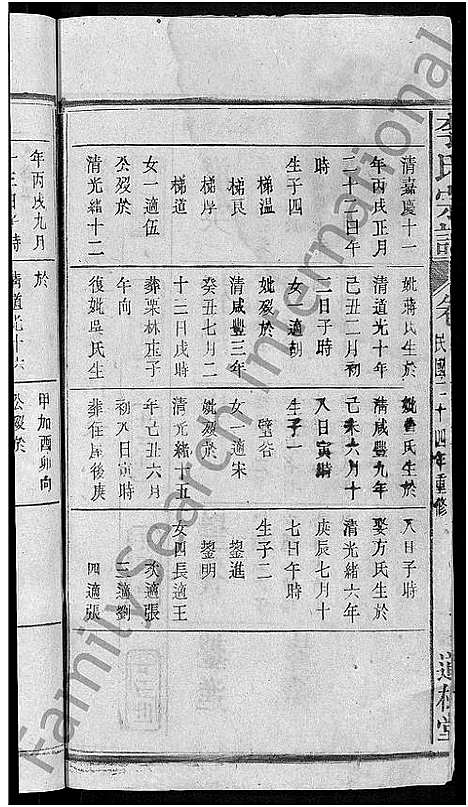 李氏宗譜
民國二十四年重修
清嘉慶十一
年丙戌正月
二十二日午
時
生子四
梯溫
梯良
梯岸
梯道
女一適伍
公歿於
清光緒十二
妣蔣氏生於
清道光十年
己丑二月初
二日子時
女一適胡
妣歿於
清咸豐三年
癸丑七月二
十二日戌時
葬栗林坵子
午向
復妣吳氏生
妣魯氏生於
清咸豐九年
己未六月十
八日寅時
生子一
鑒谷
女一適宋
妣歿於
清光緒十五
年己丑六月
初八日寅時
葬住屋後庚
八日子時
娶方氏生於
清光緒六年
庚辰七月十
七日午時
生子二
鋆進
鋆明
女四長適王
次適張
三適劉
四適張
年丙戌九月
於
清道光十六
甲加酉卯向
公歿於
FamilySearch International